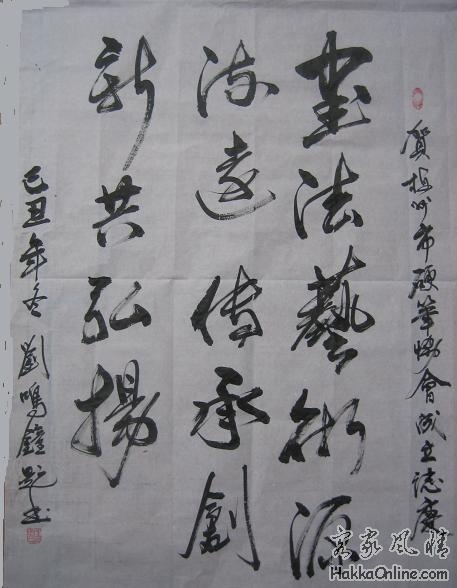 賀梅州市硬筆協會成立誌慶
書法藝術源
流遠傳承創
新共弘揚
己丑年冬劉鳴鐘題书
客家風情
HakkaOnline.com